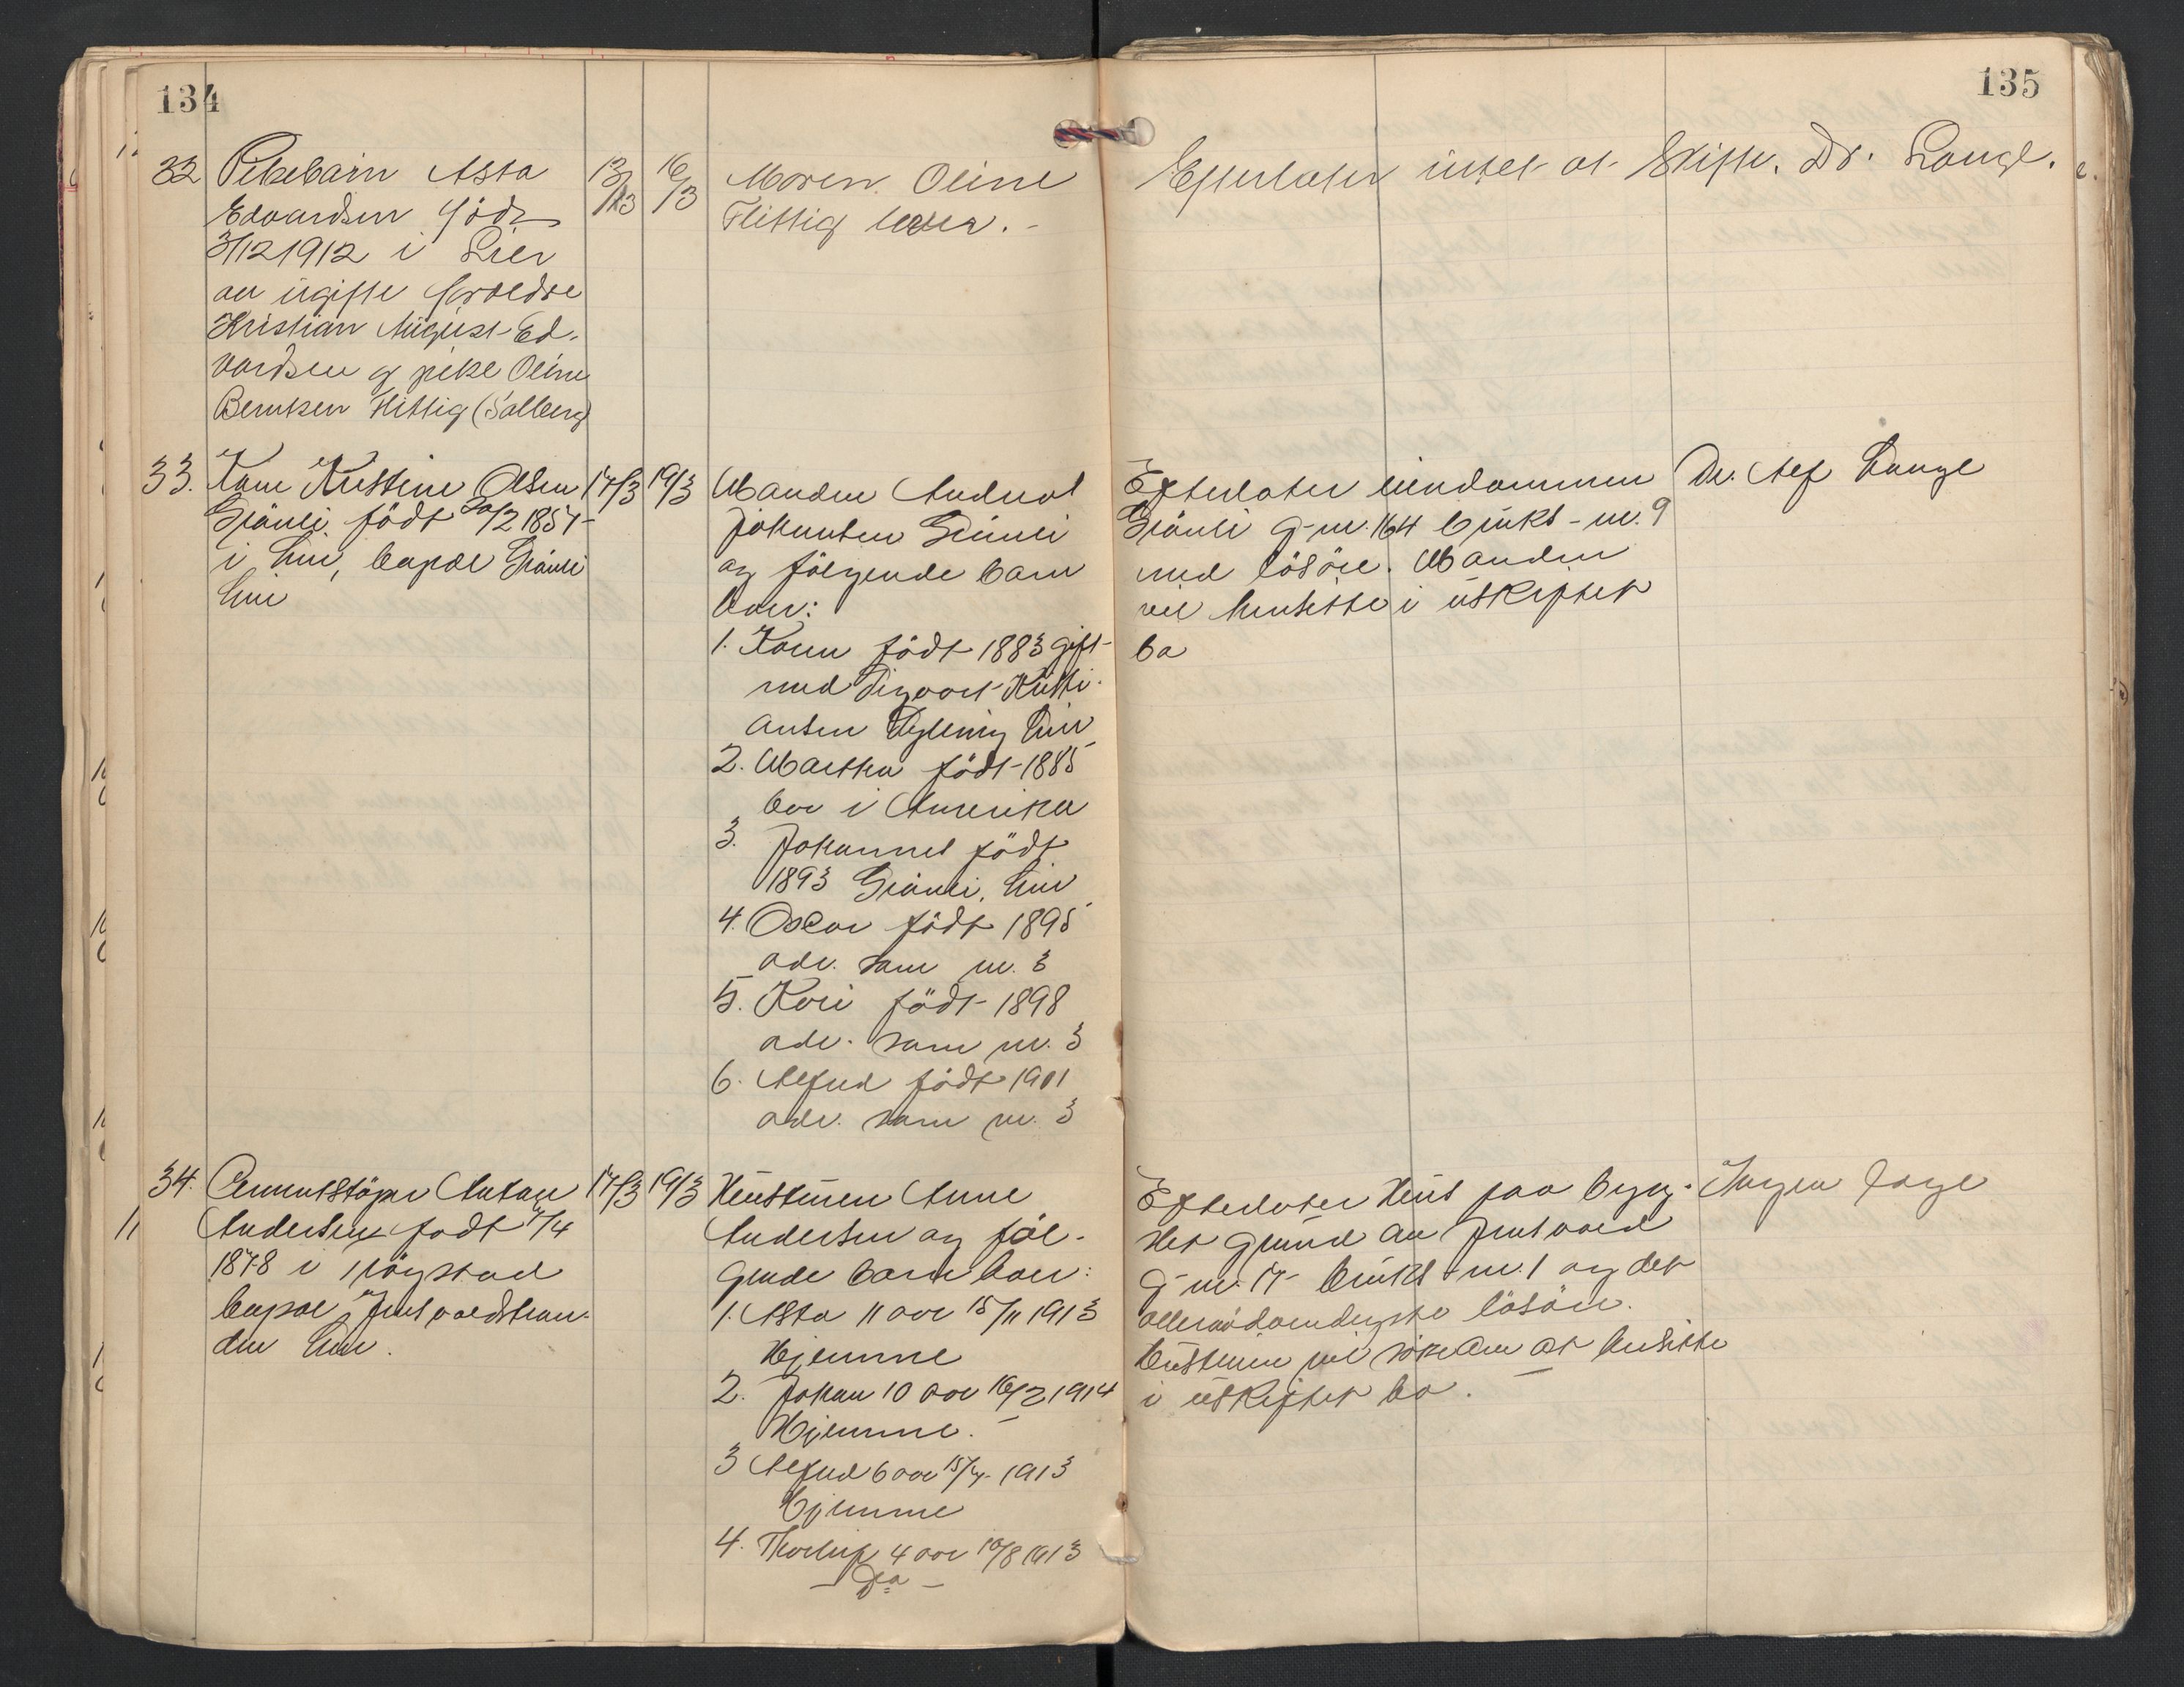 134
32 Pikebarn Asta
Edvardsen född
3/12 1912 i Lier
av ugifte foreldre
Kristian August Ed-
vardsen og pike Oline
Berntsen Flittig (Solberg)
13/3 13
16/3
Moren Oline
Flittig lever. -
33. Kone Kristine Olsen
Grönli födt 20/2 1857
i Lier, bopæl Grönli
Lier
17/3
19/3
Manden Andreas
Johansen Grönli
og følgende barn
barn:
1. Karen födt 1883 gift
med Sigvart Kristi-
ansen Lier
2. Martha födt 1885
bor i Amerika
3. Johannes födt
1893 Grönli, Lier
4. Oscar födt 1895
adr. som nr. 3
5. Kari födt 1898
adr. som nr. 3
6. Alfred födt 1901
adr. som nr. 3
34. Cementstöper Anton
Andersen födt 4/4
1878 i
bopæl
den Lier.
17/3
19/3
Hustruen Anne
Andersen og föl-
gende barn barn:
1. Asta 11 aar 15/11 1913
Hjemme
2. Johan 10 aar 16/2 1914
Hjemme. -
3 Alfred 6 aar 15/7 1913
Hjemme
4. Thorleif 4 aar 10/8 1913
- Do -
135
Efterlater intet at skifte. Dr. Lange.
Efterlater eiendommen
Grönli g-nr. 164 bruks-nr. 9
med lösöre. Manden
vil hensitte i uskiftet
bo
Dr. Alf Lange
Efterlater hus paa byg-
slet grund av
g-nr. 17 bruks-nr. 1 og det
allernödvendigste lösöre.
Hustruen vil söke om at hensitte
i uskiftet bo. -
Ingen læge